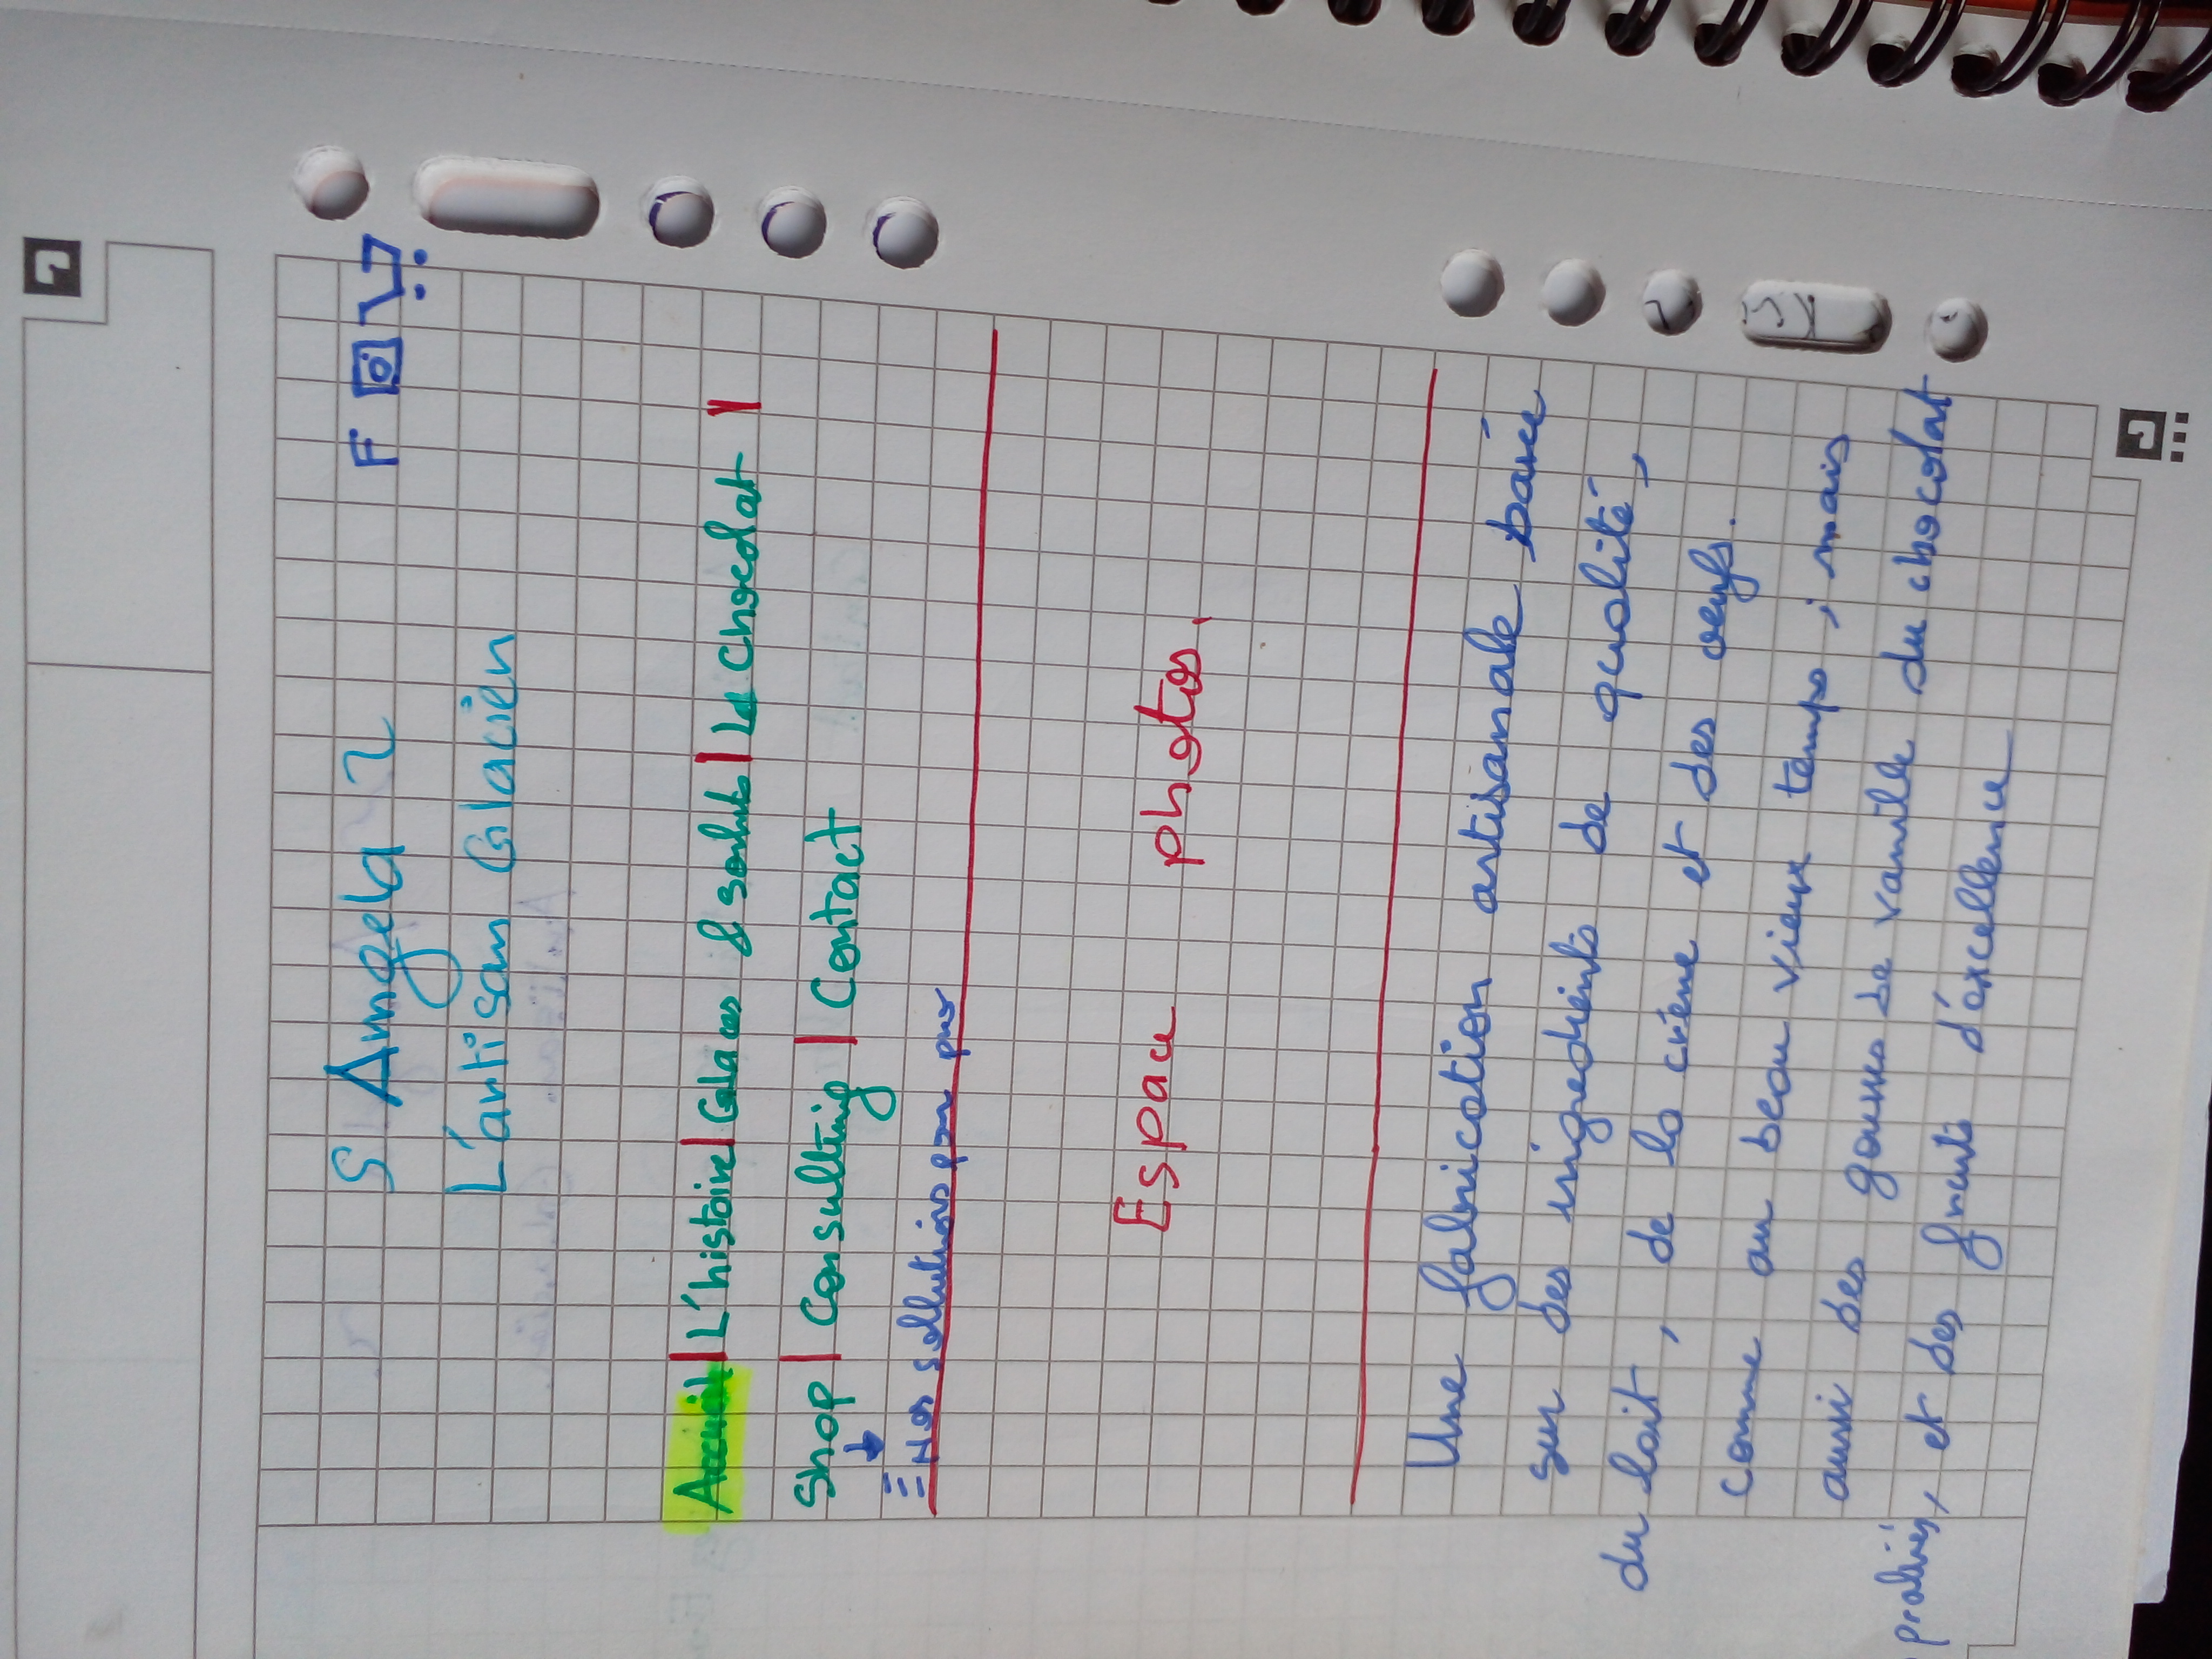 S Angela 2
F
L'artisan Glacier
Accueil | L'histoire | Glaces & sorbets | Le Chocolat |
Shop | Consulting | Contact
Nos sollutions pour pro
Espace photos.
Une fabrication artisanale basée
sur des ingredients de qualité,
du lait, de la crème et des oeufs.
comme au beau vieux temps ; mais
aussi des gousses de vanille du chocolat
pralinés, et des fruits d'éxcellence